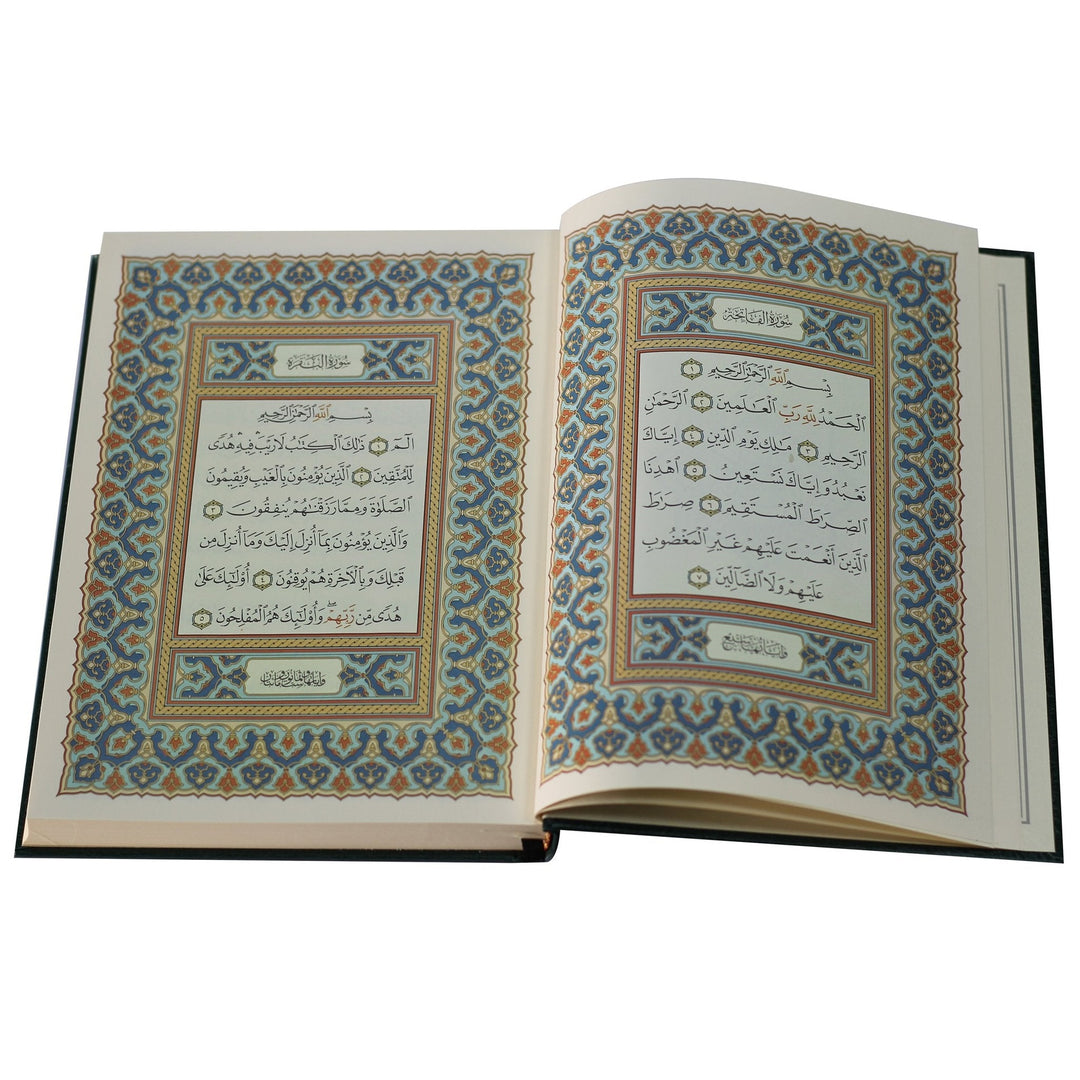 سُورَةُ الفَاتِحَةِ
بِسْمِ ٱللَّهِ ٱلرَّحْمَٰنِ ٱلرَّحِيمِ ١
ٱلْحَمْدُ لِلَّهِ رَبِّ ٱلْعَٰلَمِينَ ٢ ٱلرَّحْمَٰنِ
ٱلرَّحِيمِ ٣ مَٰلِكِ يَوْمِ ٱلدِّينِ ٤ إِيَّاكَ
نَعْبُدُ وَإِيَّاكَ نَسْتَعِينُ ٥ ٱهْدِنَا
ٱلصِّرَٰطَ ٱلْمُسْتَقِيمَ ٦ صِرَٰطَ
ٱلَّذِينَ أَنْعَمْتَ عَلَيْهِمْ غَيْرِ ٱلْمَغْضُوبِ
عَلَيْهِمْ وَلَا ٱلضَّآلِّينَ ٧
سُورَةُ البَقَرَةِ
بِسْمِ ٱللَّهِ ٱلرَّحْمَٰنِ ٱلرَّحِيمِ
الٓمٓ ١ ذَٰلِكَ ٱلْكِتَٰبُ لَا رَيْبَ ۛ فِيهِ ۛ هُدًى
لِّلْمُتَّقِينَ ٢ ٱلَّذِينَ يُؤْمِنُونَ بِٱلْغَيْبِ وَيُقِيمُونَ
ٱلصَّلَوٰةَ وَمِمَّا رَزَقْنَٰهُمْ يُنفِقُونَ ٣
وَٱلَّذِينَ يُؤْمِنُونَ بِمَآ أُنزِلَ إِلَيْكَ وَمَآ أُنزِلَ مِن
قَبْلِكَ وَبِٱلْءَاخِرَةِ هُمْ يُوقِنُونَ ٤ أُو۟لَٰٓئِكَ عَلَىٰ
هُدًى مِّن رَّبِّهِمْ ۖ وَأُو۟لَٰٓئِكَ هُمُ ٱلْمُفْلِحُونَ ٥